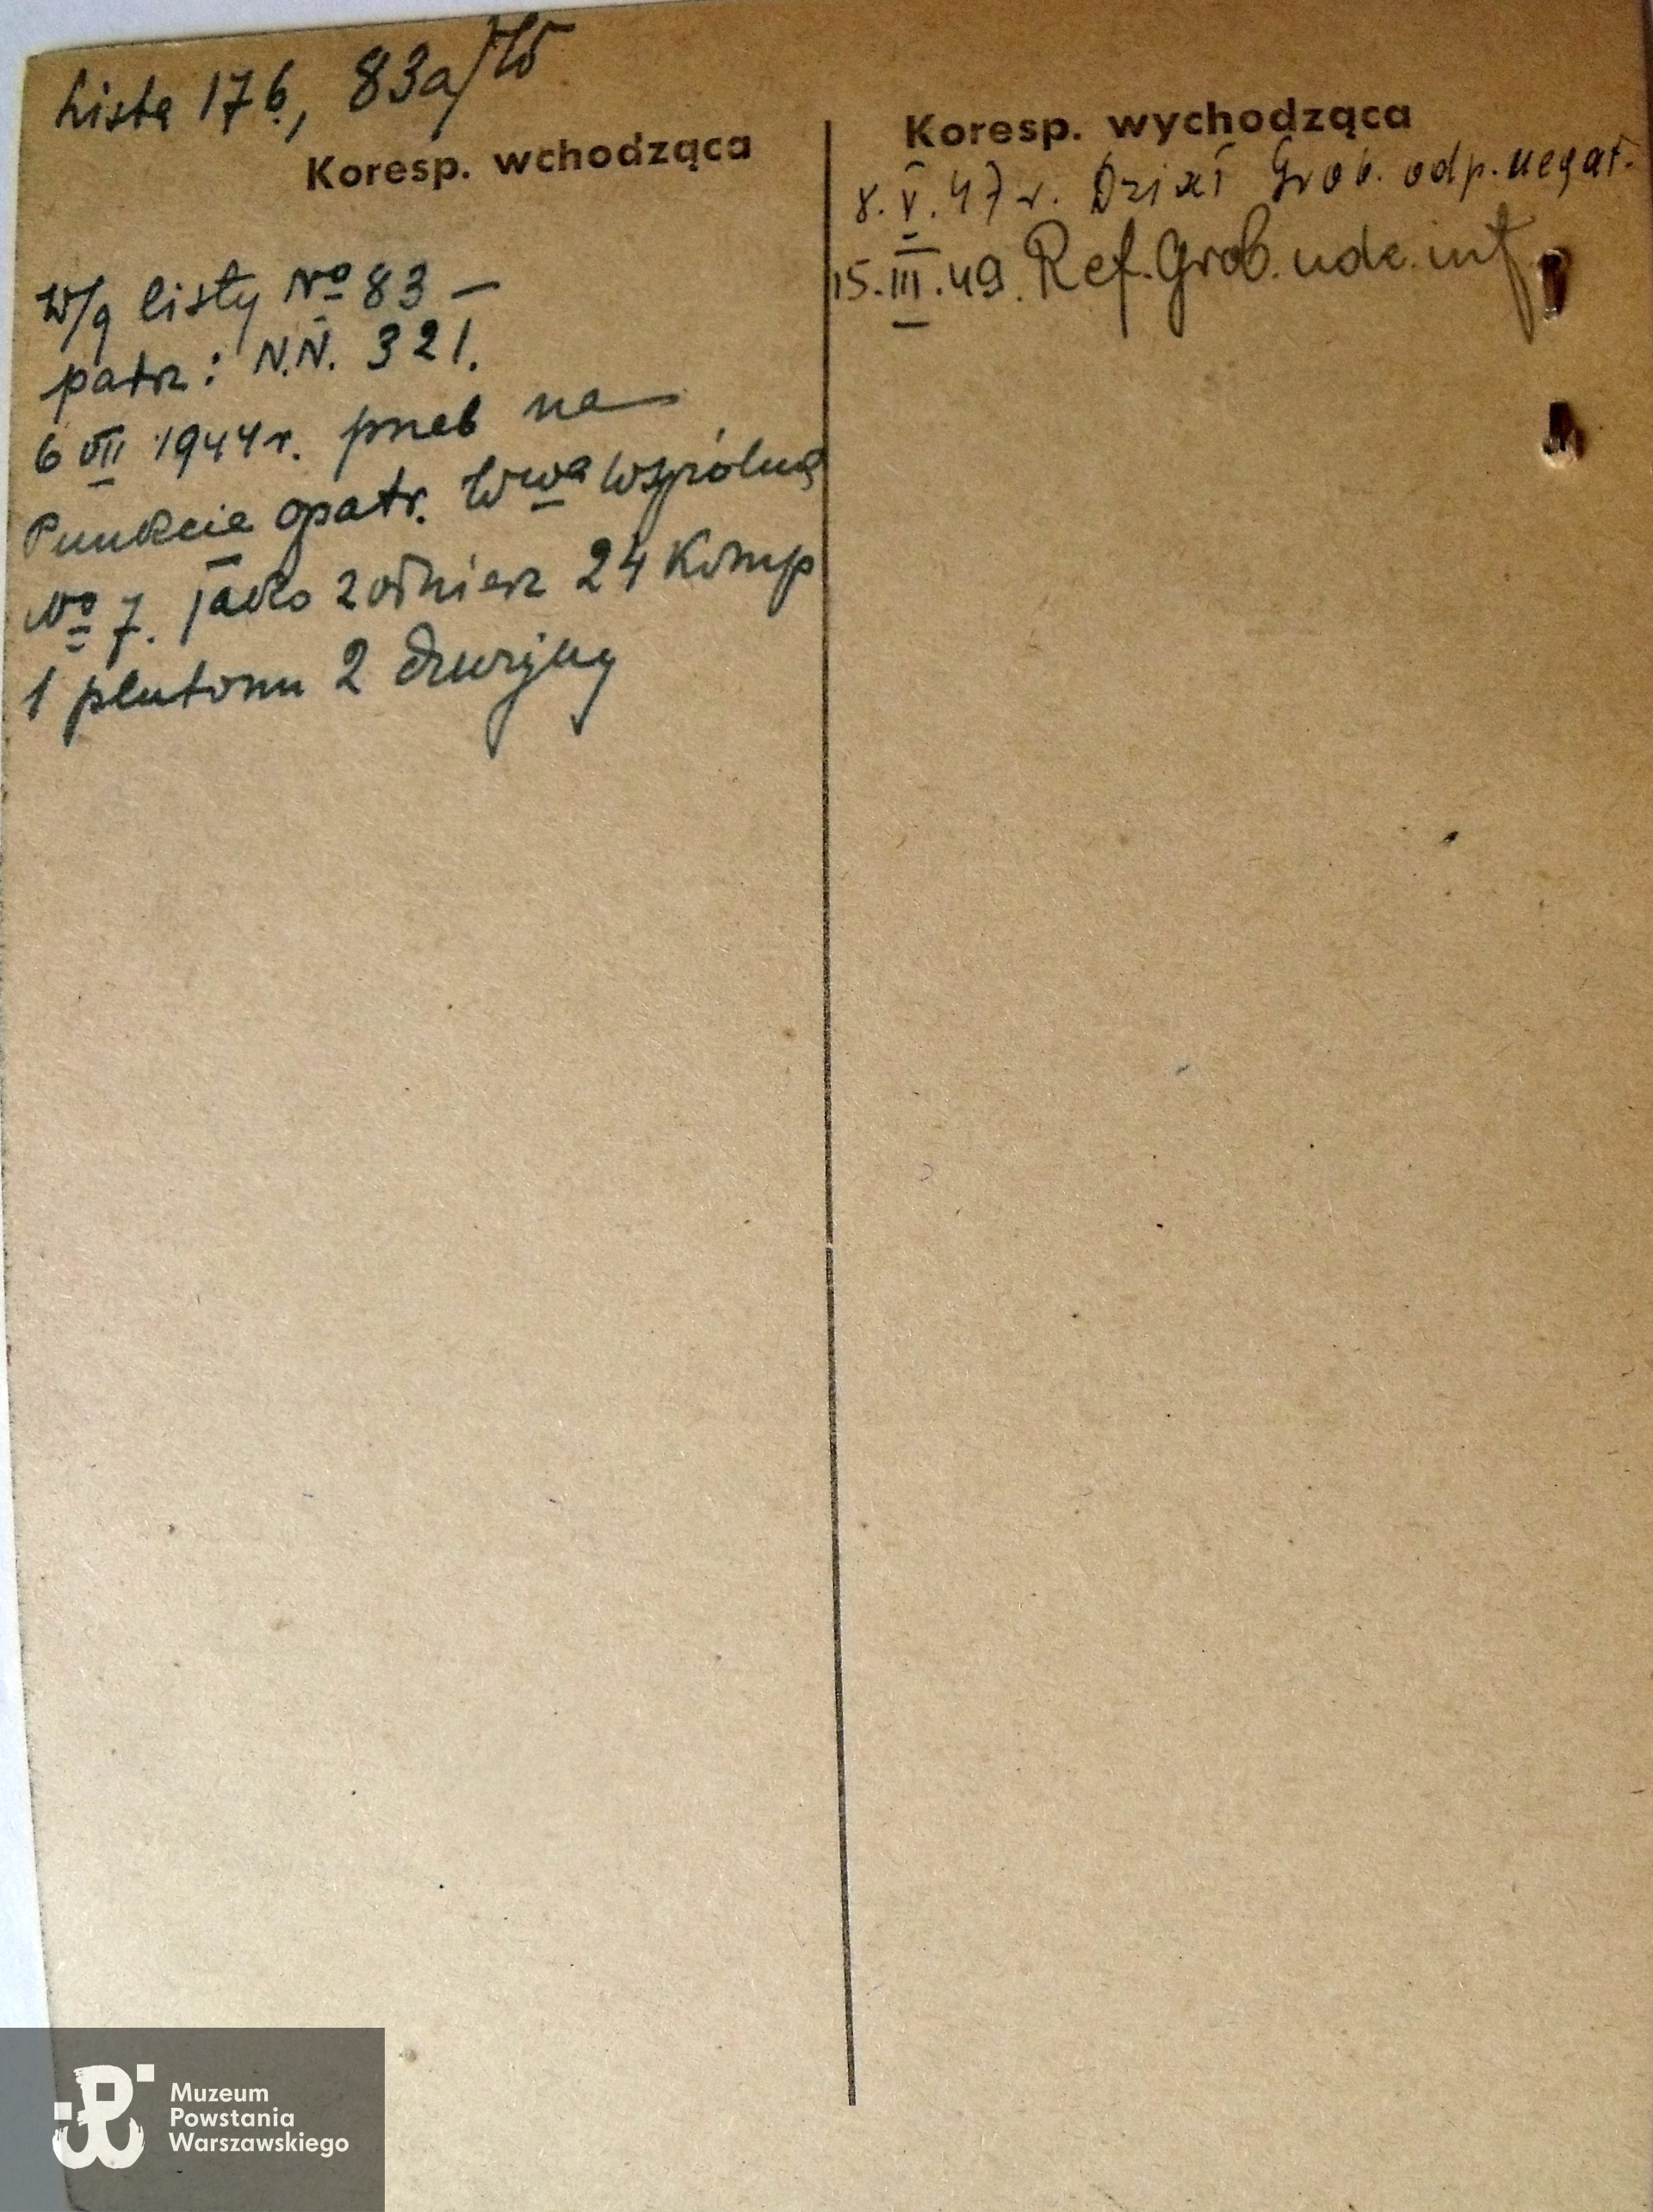 Lista 176, 83a/
Koresp. wchodząca
W/g listy No 83 –
patrz: N.N. 321.
6 VIII 1944 r. przeb na
Punkcie opatr. W-wa Wspólna
No 7. jako żołnierz 24 Komp
1 plutonu 2 drużyny
Koresp. wychodząca
8.V.47 r. Dział Grob. odp. negat.
15.III.49. Ref. Grob. udz. inf
Muzeum
Powstania
Warszawskiego